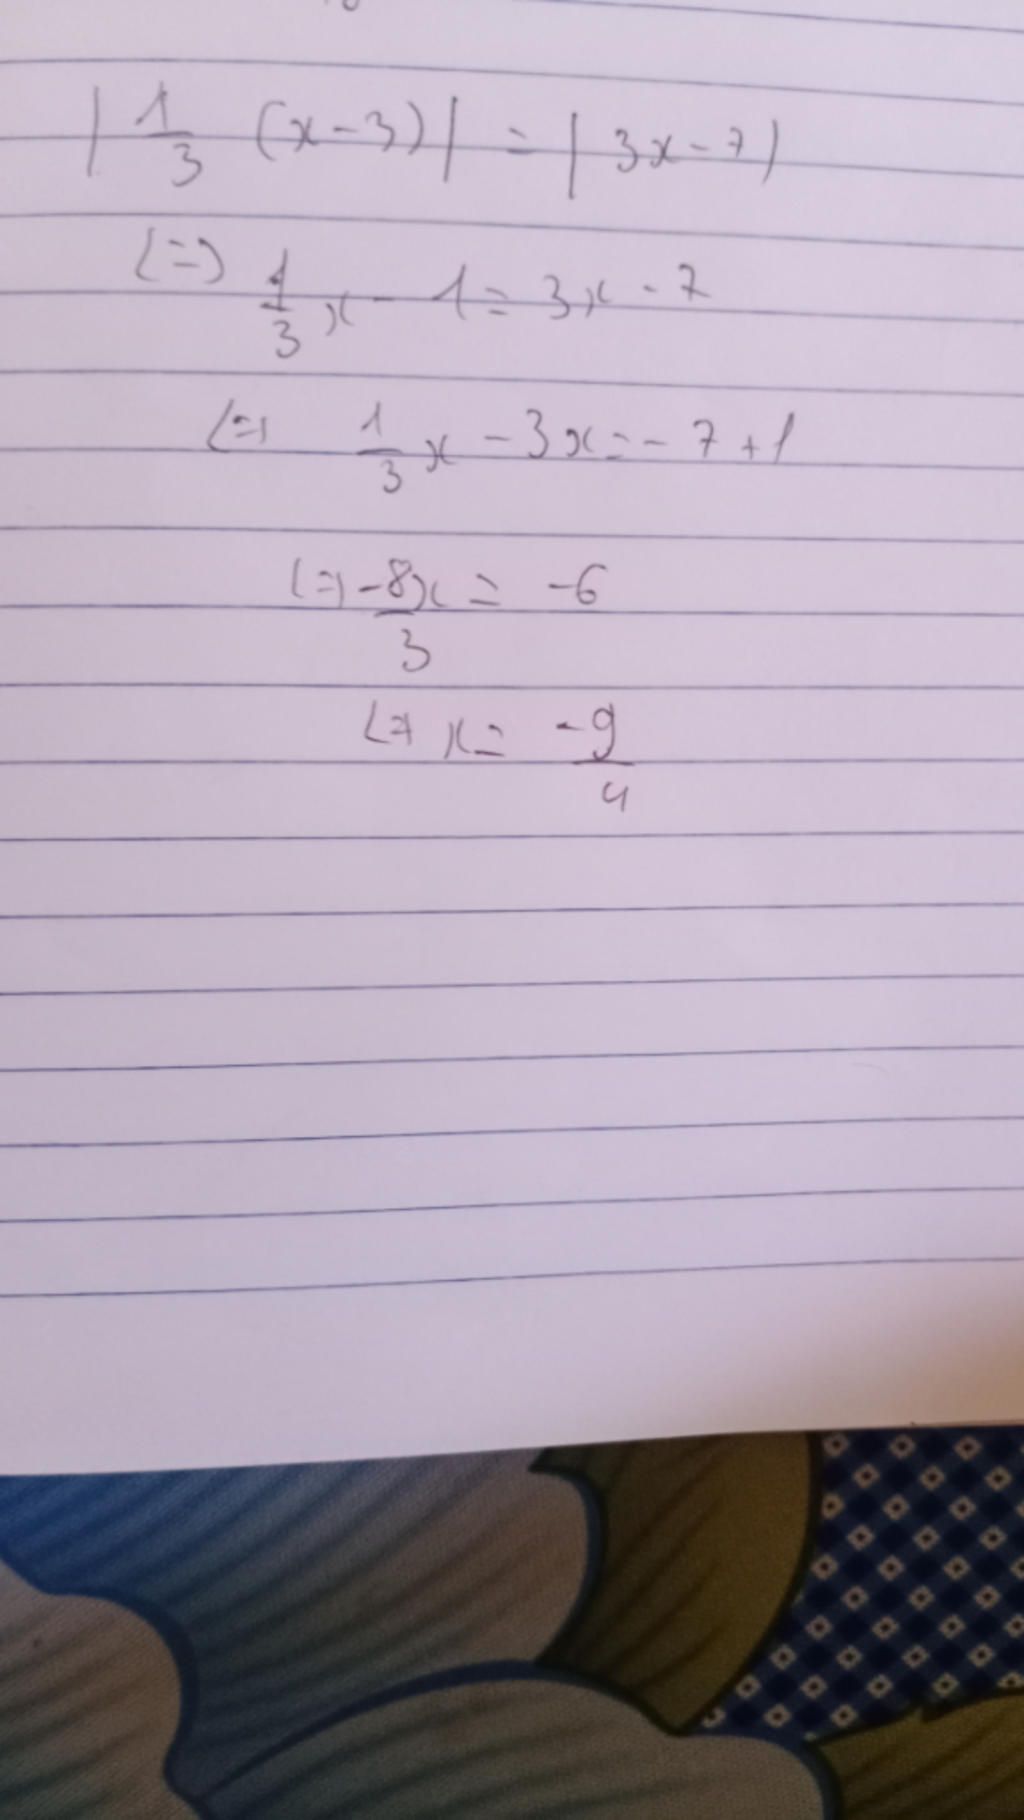 |1/3 (x-3)| = |3x-7|
(=) 1/3 x - 1 = 3x - 7
(=) 1/3 x - 3x = -7+1
(=) -8x/3 = -6
(=) x = -9/4